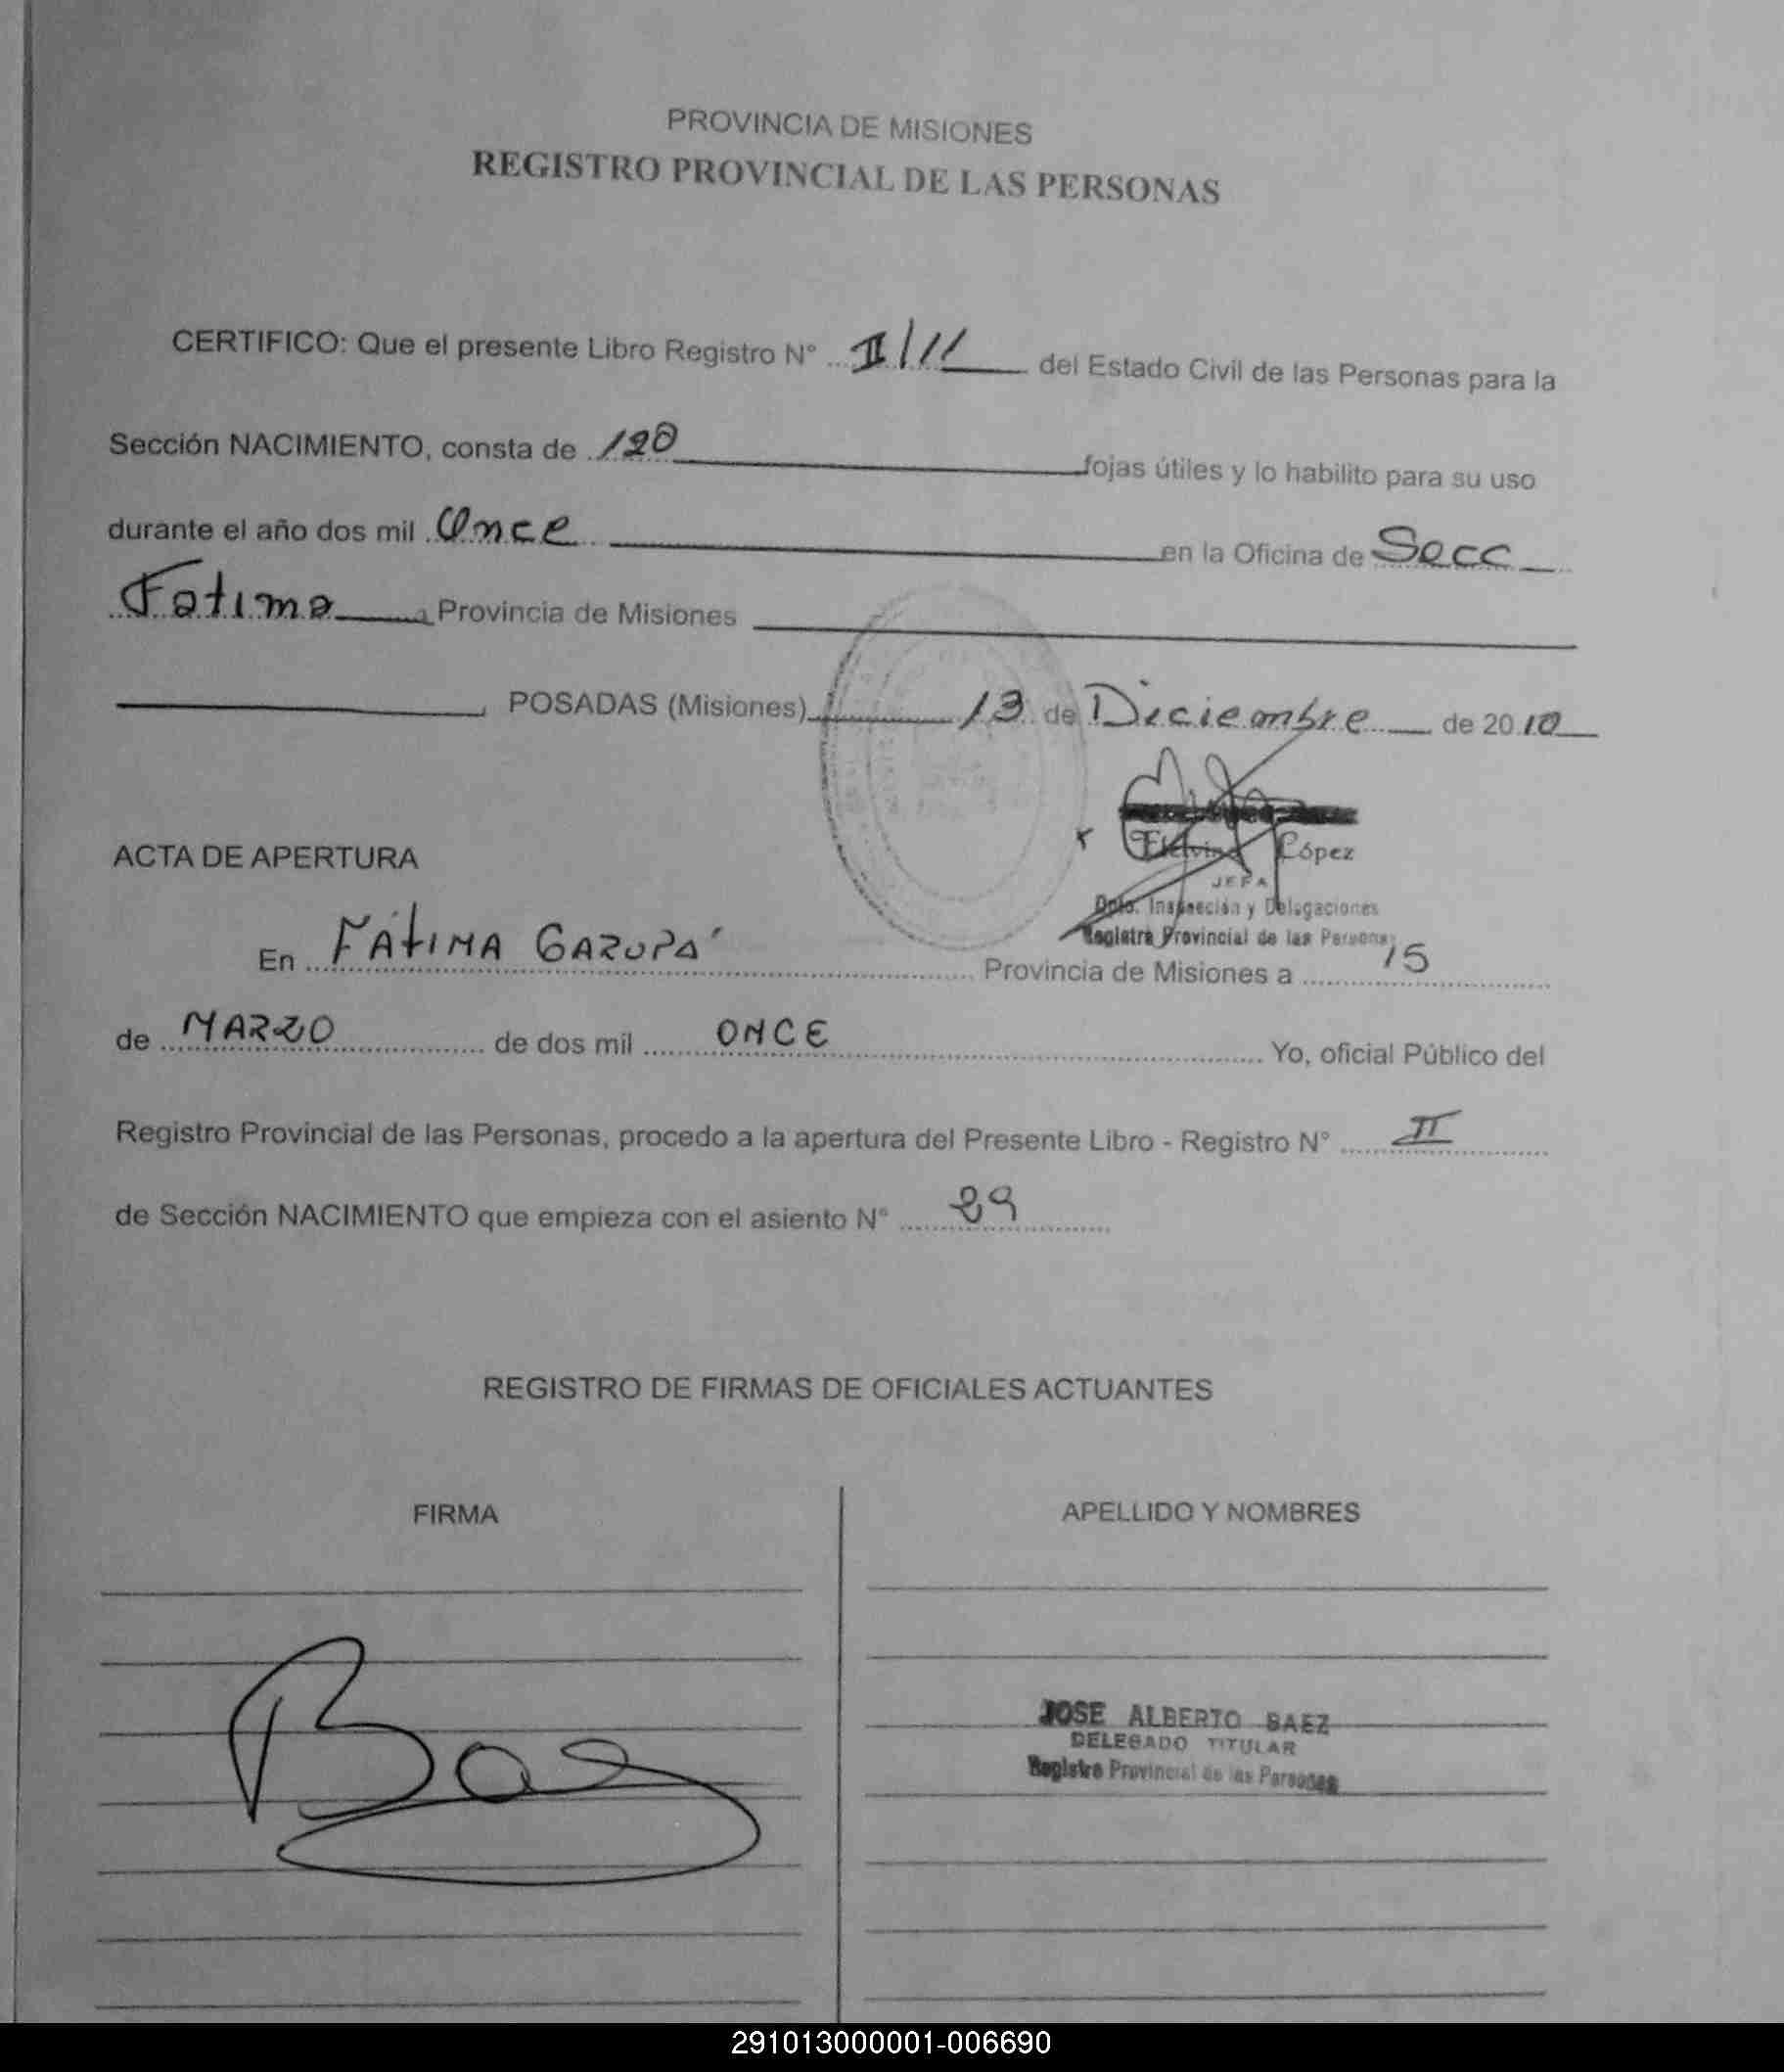 PROVINCIA DE MISIONES
REGISTRO PROVINCIAL DE LAS PERSONAS
CERTIFICO: Que el presente Libro Registro N° II/11 del Estado Civil de las Personas para la
Sección NACIMIENTO, consta de 120 fojas útiles y lo habilito para su uso
durante el año dos mil Once en la Oficina de Secc
Fatima Provincia de Misiones
POSADAS (Misiones) 13 de Diciembre de 2010
López
JEFA
ACTA DE APERTURA
Dpto. Inspección y Delegaciones
Registro Provincial de las Personas
En FÁTIMA GARUPÁ Provincia de Misiones a 15
de MARZO de dos mil ONCE Yo, oficial Público del
Registro Provincial de las Personas, procedo a la apertura del Presente Libro - Registro N° II
de Sección NACIMIENTO que empieza con el asiento N° 29
REGISTRO DE FIRMAS DE OFICIALES ACTUANTES
FIRMA APELLIDO Y NOMBRES
JOSE ALBERTO BAEZ
DELEGADO TITULAR
Registro Provincial de las Personas
291013000001-006690